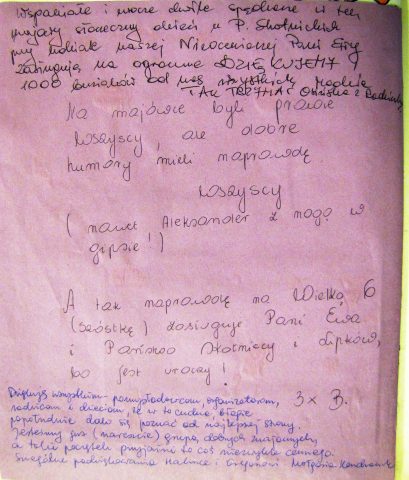 Wspaniałe i mocne chwile spędzone w ten
majowy słoneczny dzień u P. Skotnickich
przy udziale naszej Nieocenionej Pani Ewy
zasługują na ogromne DZIĘKUJEMY
1000 buziaków od nas wszystkich
TAK TRZYMAĆ z Rodziną
Na majówce byli prawie
wszyscy, ale dobre
humory mieli naprawdę
wszyscy
(nawet Aleksander z nogą w
gipsie!)
A tak naprawdę na Wielką 6
(szóstkę) zasługuje Pani Ewa
i Państwo Skotniccy i
bo jest uroczy!
3 x B.
Dziękuję wszystkim - pomysłodawcom, organizatorom,
rodzicom i dzieciom, że w to cudne, ciepłe
popołudnie dało się poznać od najlepszej strony.
Jesteśmy już (nareszcie) grupą dobrych znajomych,
a takie początki przyjaźni to coś niezwykle cennego.
Szczególne podziękowania Halince i Grzegorzowi Małgosia